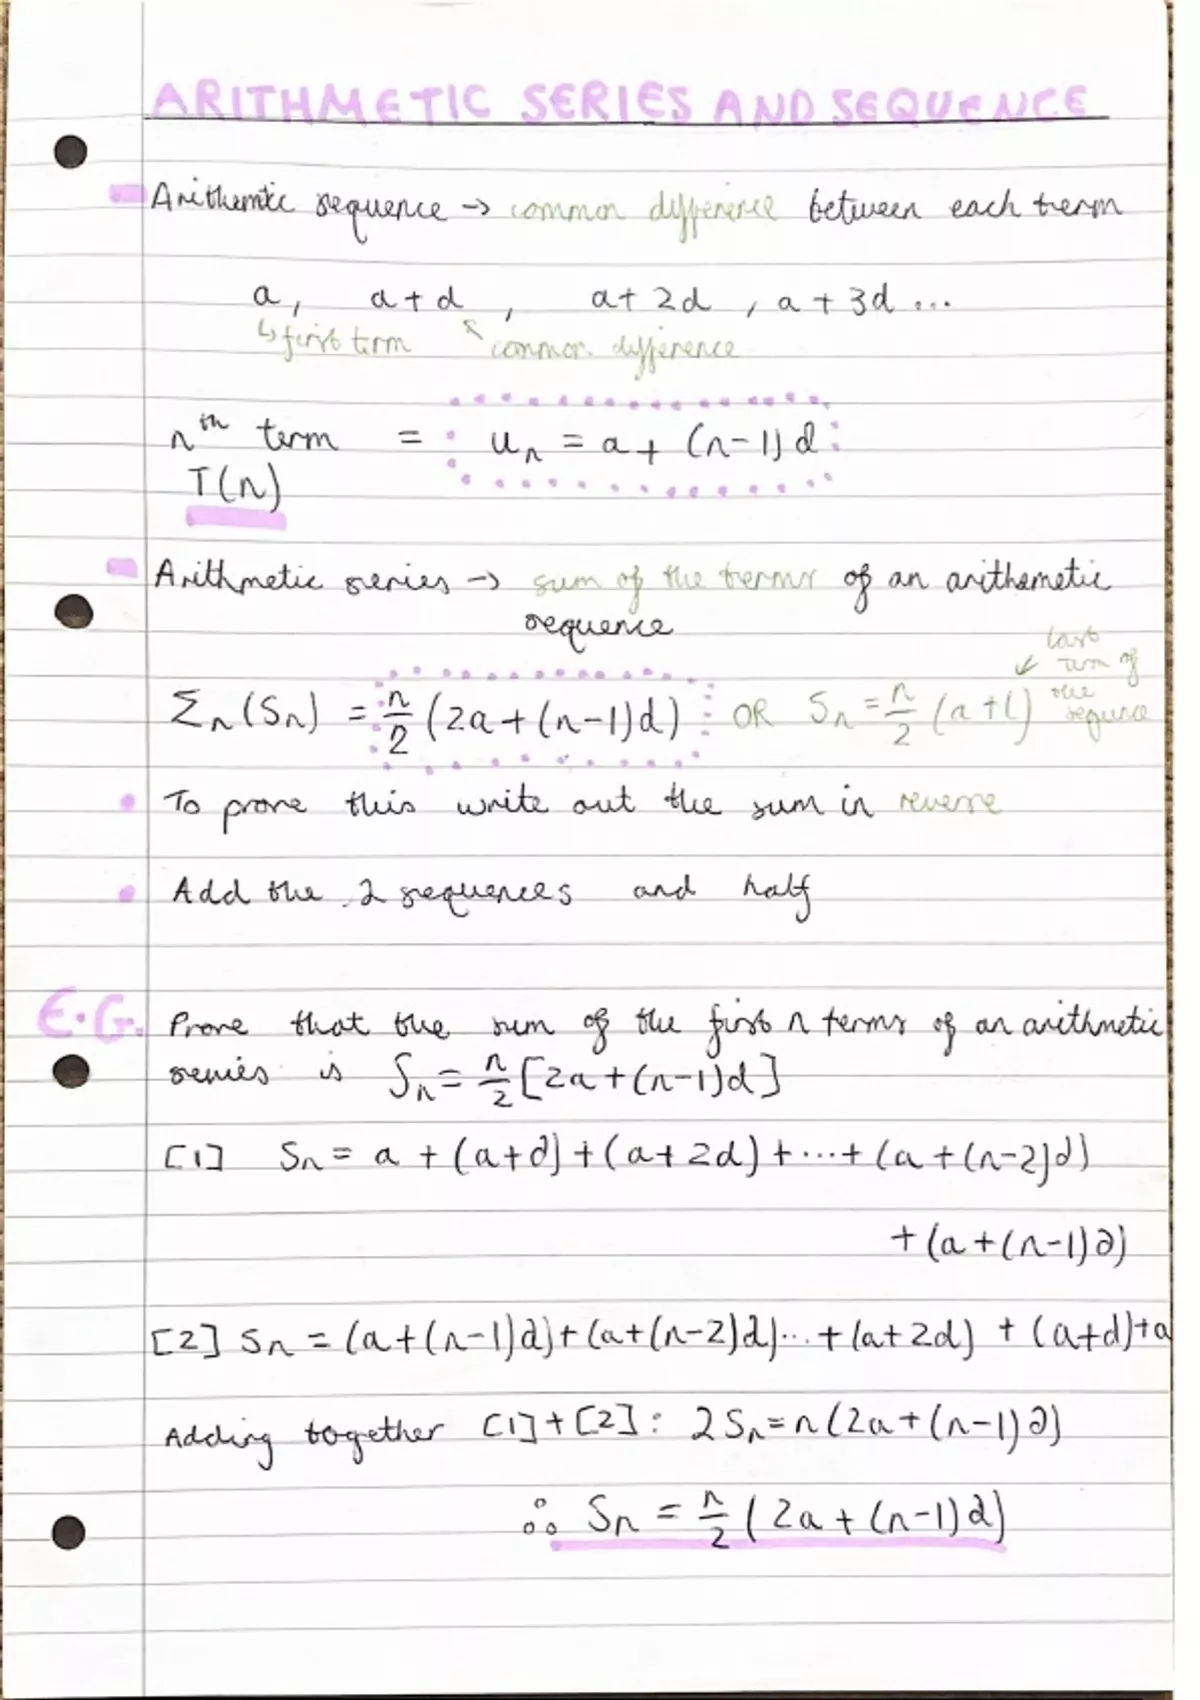 ARITHMETIC SERIES AND SEQUENCE
Arithemtic sequence → common difference between each term
a, a+d, a+2d, a+3d ...
↳ first term ↖ common difference
nth term = uₙ = a + (n-1)d
T(n)
Arithmetic series → sum of the terms of an arithemetic
sequence
last
↙ term of
the
sequence
Σₙ(Sₙ) = n/2 (2a+(n-1)d) OR Sₙ = n/2 (a+l)
To prove this write out the sum in reverse
Add the 2 sequences and half
E.G. Prove that the sum of the first n terms of an arithmetic
series is Sₙ = n/2 [2a+(n-1)d]
[1] Sₙ = a + (a+d) + (a+2d) + ... + (a+(n-2)d)
+ (a+(n-1)d)
[2] Sₙ = (a+(n-1)d)+(a+(n-2)d)...+(a+2d) + (a+d)+a
Adding together [1]+[2]: 2Sₙ=n(2a+(n-1)d)
∴ Sₙ = n/2 (2a+(n-1)d)